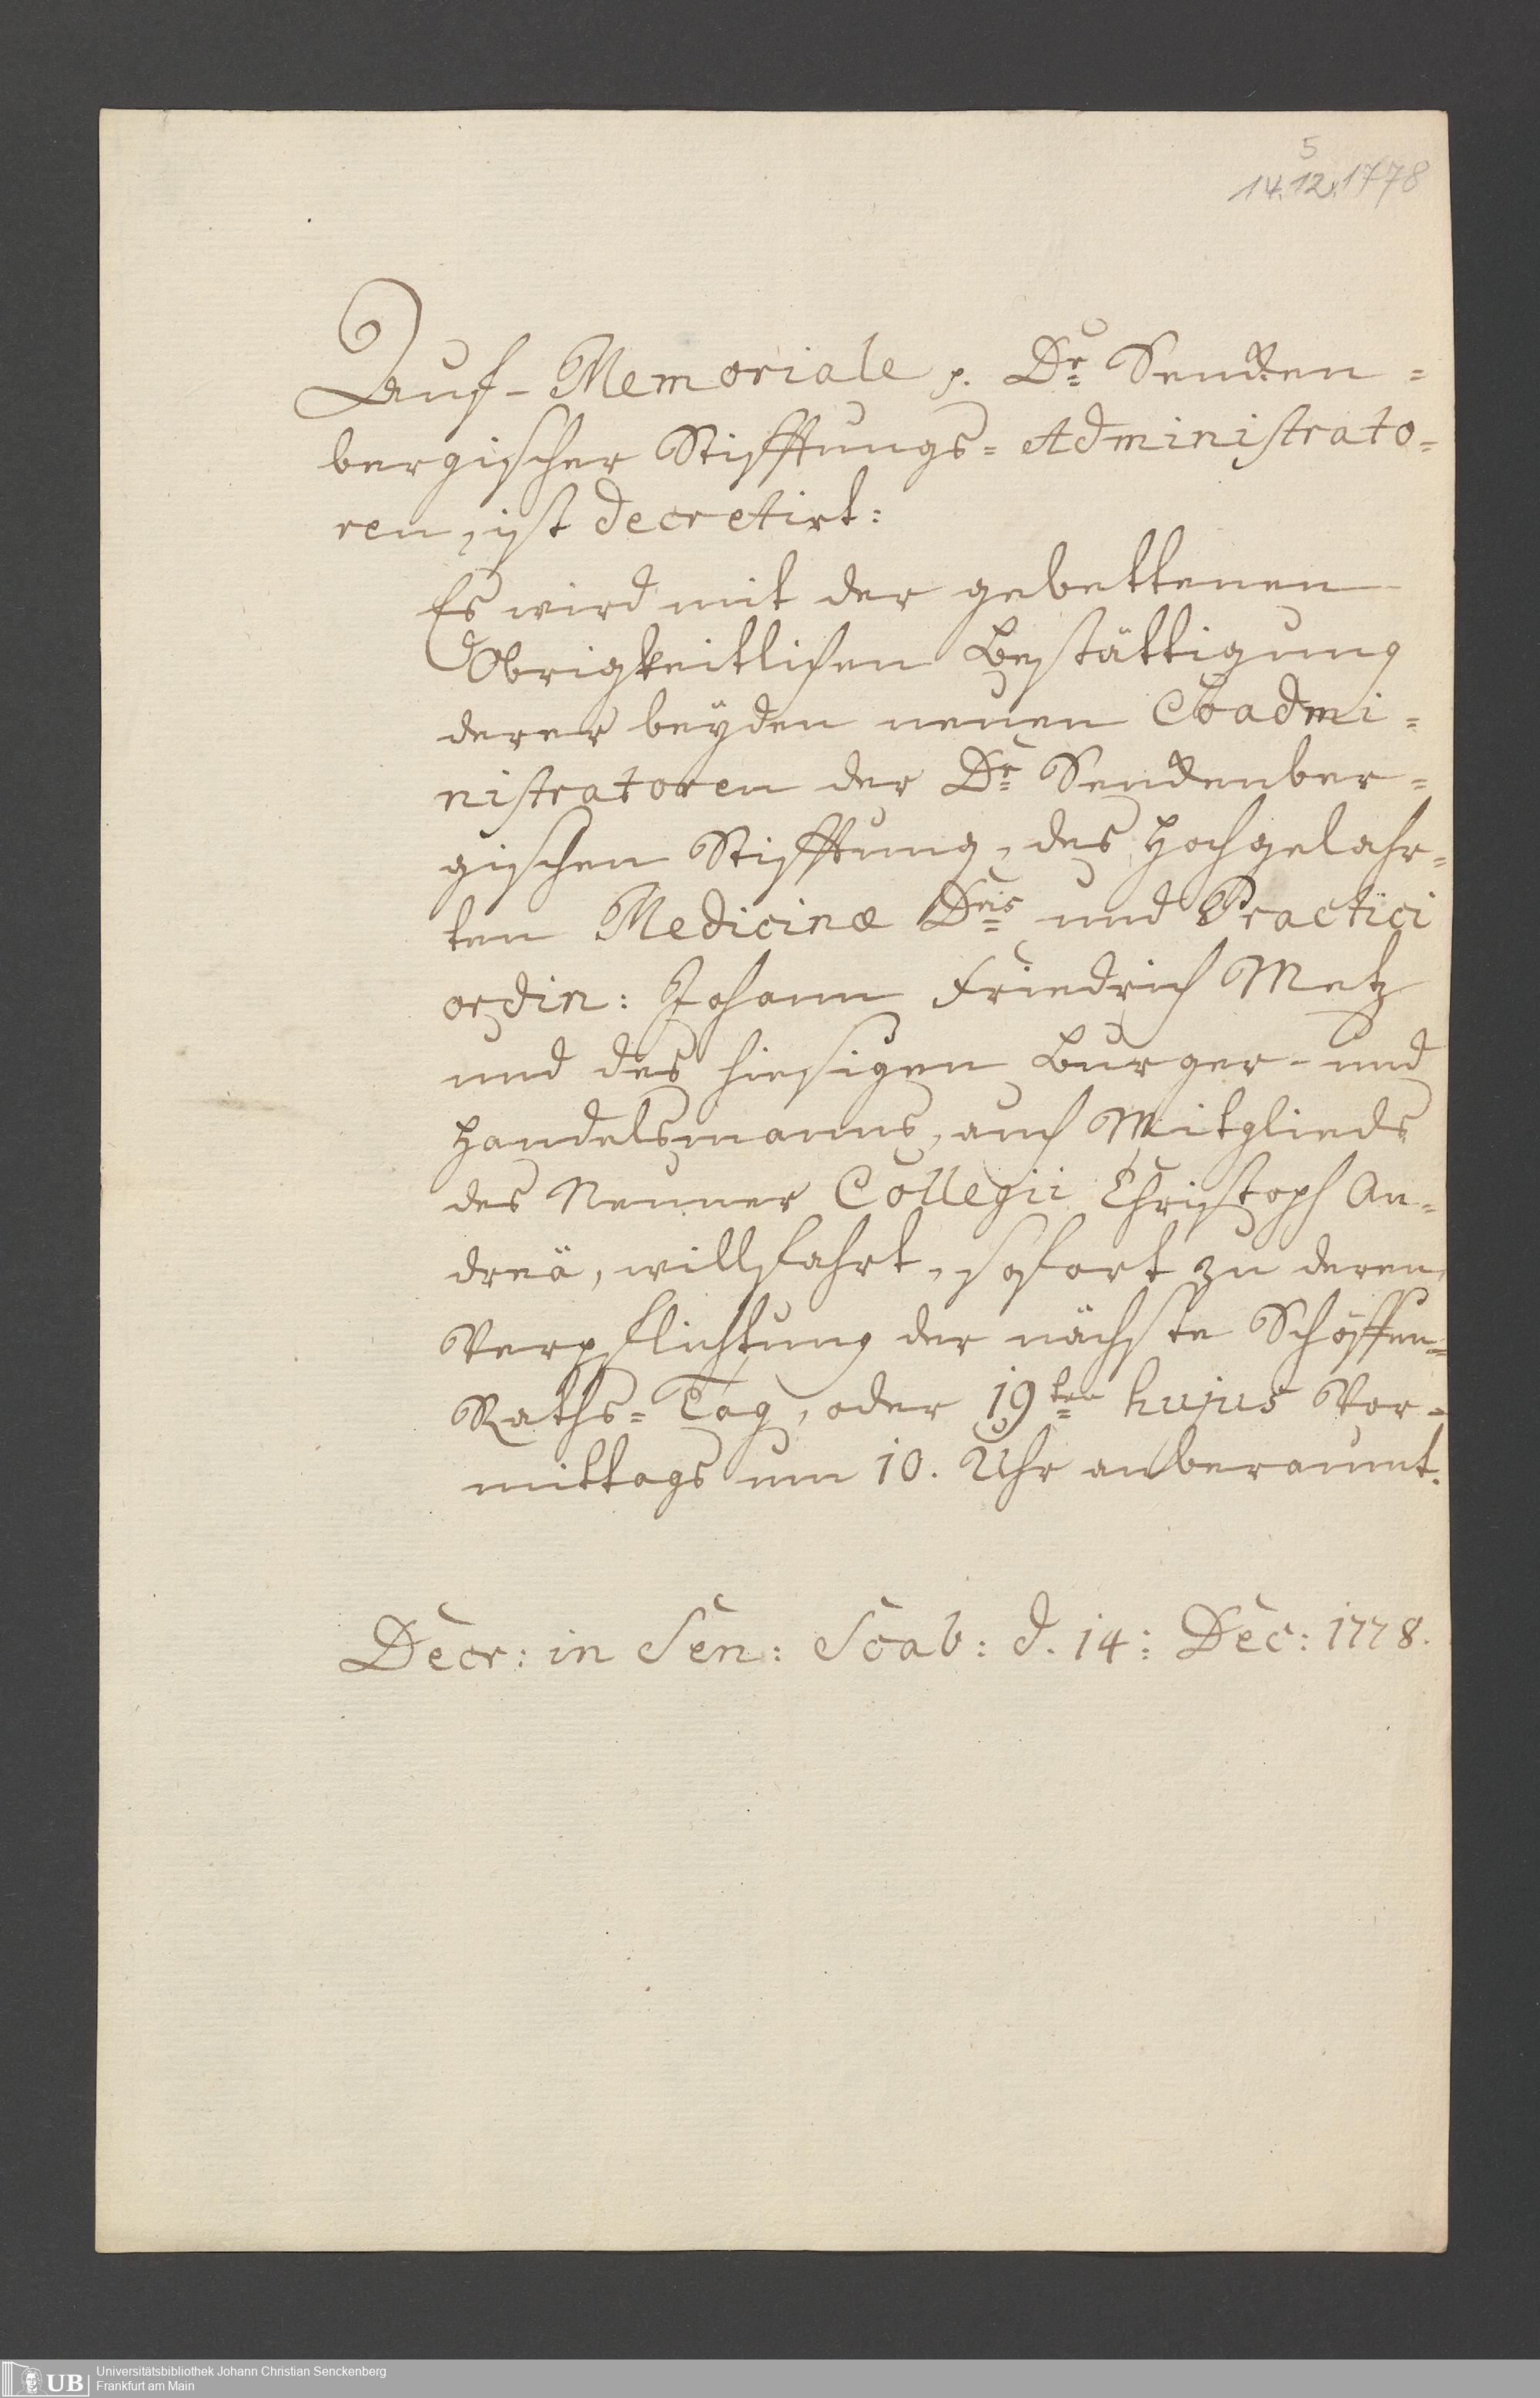 5
14.12.1778
Auf Memoriale p. Dr Sencken=
bergischer Stifftungs=Administrato=
ren, ist decretirt:
Es wird mit der gebettenen
Obrigkeitlichen Bestättigung
derer beyden neuen Coadmi=
nistratoren der Dr Senckenber=
gischen Stifftung, des Hochgelahr=
ten Medicinæ Dris und Practici
ordin: Johann Friedrich Metz
und des hiesigen Burger- und
Handelsmanns, auch Mitglieds
des Neuner Collegii Christoph An=
dreä, willfahrt, sofort zu deren
Verpflichtung der nächste Schöffen=
Raths=Tag, oder 19ten hujus Vor=
mittags um 10. Uhr anberaumt.
Decr: in Sen: Scab: d. 14: Dec: 1778.
UB
Universitätsbibliothek Johann Christian Senckenberg
Frankfurt am Main